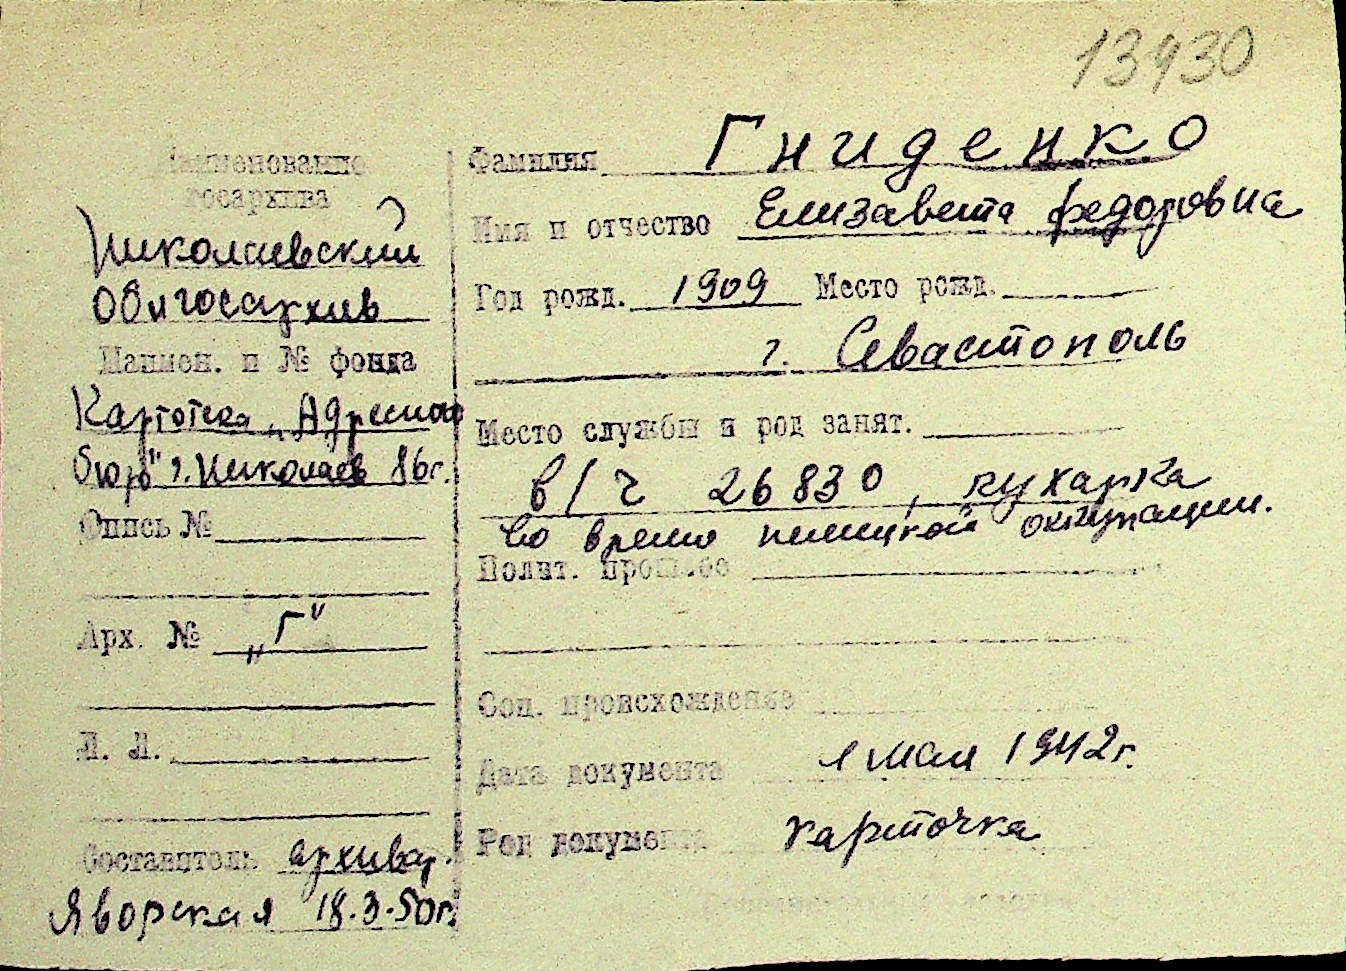 13430
Наименование
госархива
Николаевский
Облгосархив
Наимен. и № фонда
Картотека „Адресного
бюро" г. Николаев 86г.
Опись №
Арх. № „Г"
Л. Л.
Составитель архивар.
Яворская 18.3.50г.
Фамилия Гниденко
Имя и отчество Елизавета Федоровна
Год рожд. 1909 Место рожд.
г. Севастополь
Место службы и род занят.
в/ч 26830, кухарка
во время немецкой оккупации.
Полит. прошлое
Соц. происхождение
Дата документа 1 мая 1942г.
Род документа карточка